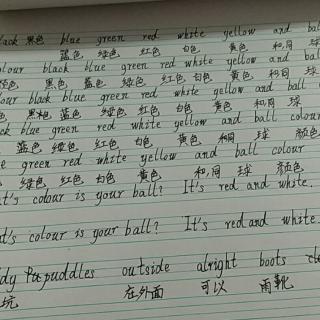 black 黑色 blue green red white yellow and ball
蓝色 绿色 红色 白色 黄色 和,同 球
colour black blue green red white yellow and ball
黑色 蓝色 绿色 红色 白色 黄色 和同 球
colour black blue green red white yellow and ball
黑色 蓝色 绿色 红色 白色 黄色 和同 球
black blue green red white yellow and ball colour
蓝色 绿色 红色 白色 黄色 和同 球 颜色
blue green red white yellow and ball colour
绿色 红色 白色 黄色 和,同 球 颜色
What's colour is your ball? It's red and white.
What's colour is your ball? It's red and white.
puddles outside alright boots
坑 在外面 可以 雨靴